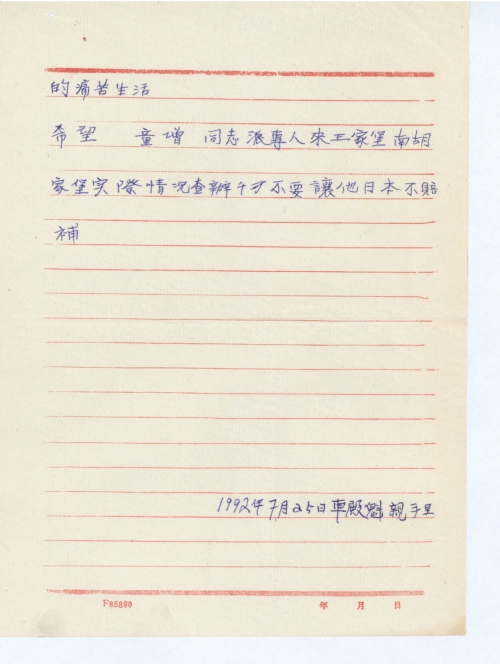 的痛苦生活
希望 童增 同志派專人來王家堡南胡
家堡实際情况查辦千才不要讓他日本不賠
補
1992年7月25日車殿魁親手呈
F85880 年 月 日